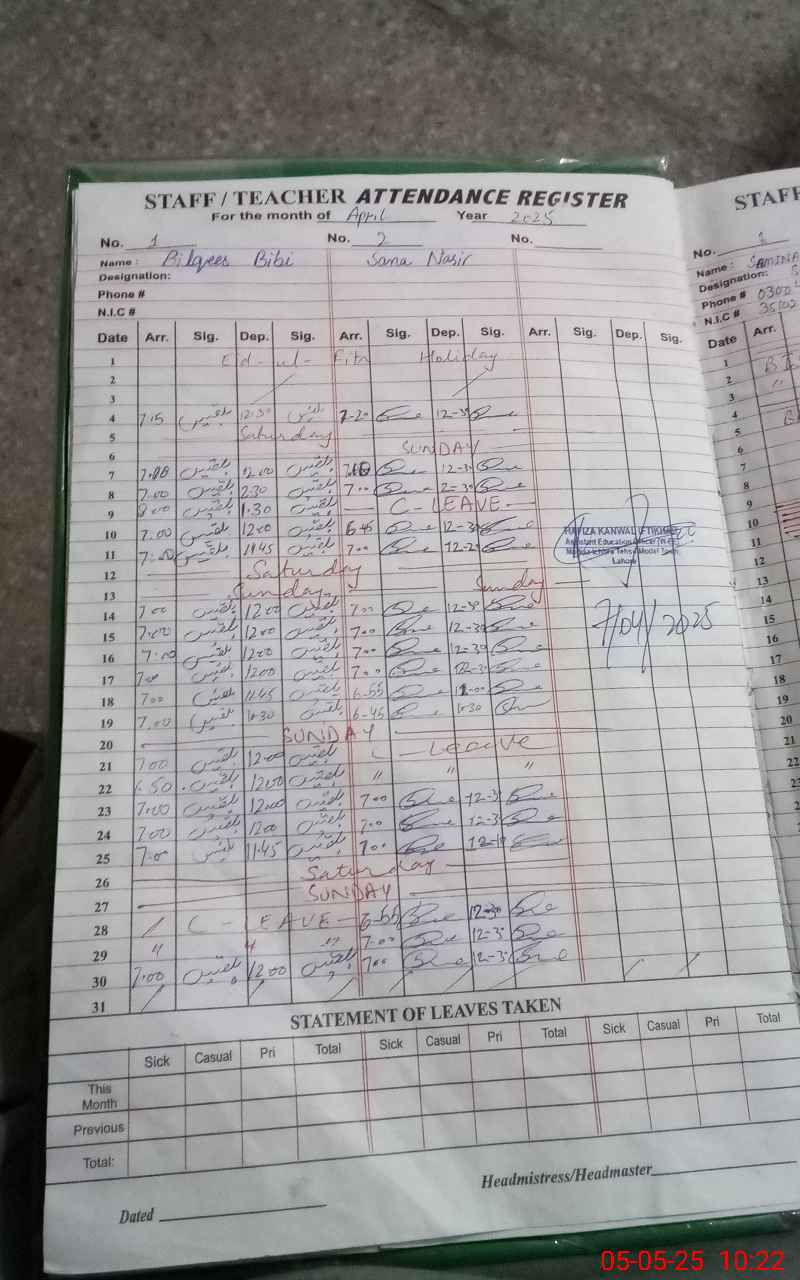 STAFF / TEACHER ATTENDANCE REGISTER
For the month of April Year 2025
No. 1 No. 2 No.
Name : Bilqees Bibi Sana Nasir
Designation:
Phone #
N.I.C #
Date Arr. Sig. Dep. Sig. Arr. Sig. Dep. Sig. Arr. Sig. Dep. Sig.
1 Ed-ul-Fitr Holiday
2
3
4 7.15 بلقیس 12:30 بلقیس 7-20 12-3
5 Saturday
6 SUNDAY
7 7.00 بلقیس 12.00 بلقیس 12-3
8 7.00 بلقیس 2.30 بلقیس 7.00 2-30
9 8.00 بلقیس 1.30 بلقیس C-LEAVE
10 7.00 بلقیس 12.00 بلقیس 6.45 12-3
11 7.00 بلقیس 11.45 بلقیس 7.00 12-2
12 Saturday
13 Sunday Sunday
14 7.00 بلقیس 12.00 بلقیس 7.00 12-30
15 7.00 بلقیس 12.00 بلقیس 7.00 12-30
16 7.00 بلقیس 12.00 بلقیس 7.00 12-30
17 7.00 بلقیس 12.00 بلقیس 7.00 12-30
18 7.00 بلقیس 11.45 بلقیس 6-55
19 7.00 بلقیس بلقیس 6-45
20 SUNDAY
21 7.00 بلقیس 12.00 بلقیس C-Leave
22 6.50 بلقیس 12.00 بلقیس " " "
23 7.00 بلقیس 12.00 بلقیس 7.00 12-3
24 7.00 بلقیس 12.00 بلقیس 7.00 12-3
25 7.00 بلقیس 11.45 بلقیس 7.00
26 Saturday
27 SUNDAY
28 C-LEAVE 6-55 12-30
29 " " " 7.00 12-3
30 7.00 بلقیس 12.00 بلقیس 7.00 12-3
31
HAFIZA KANWAL IFTIKHAR
Assistant Education Officer (W-EE)
Markaz Ichhra Tehsil Model Town
Lahore
7/04/2025
STATEMENT OF LEAVES TAKEN
Sick Casual Pri Total Sick Casual Pri Total Sick Casual Pri Total
This Month
Previous
Total:
Dated Headmistress/Headmaster
STAFF
No. 1
Name : SAMINA
Designation:
Phone # 0300
N.I.C #
Date Arr.
1
2
3
4
5
6
7
8
9
10
11
12
13
14
15
16
17
18
19
20
21
22
23
24
25
26
27
28
29
30
31
05-05-25 10:22